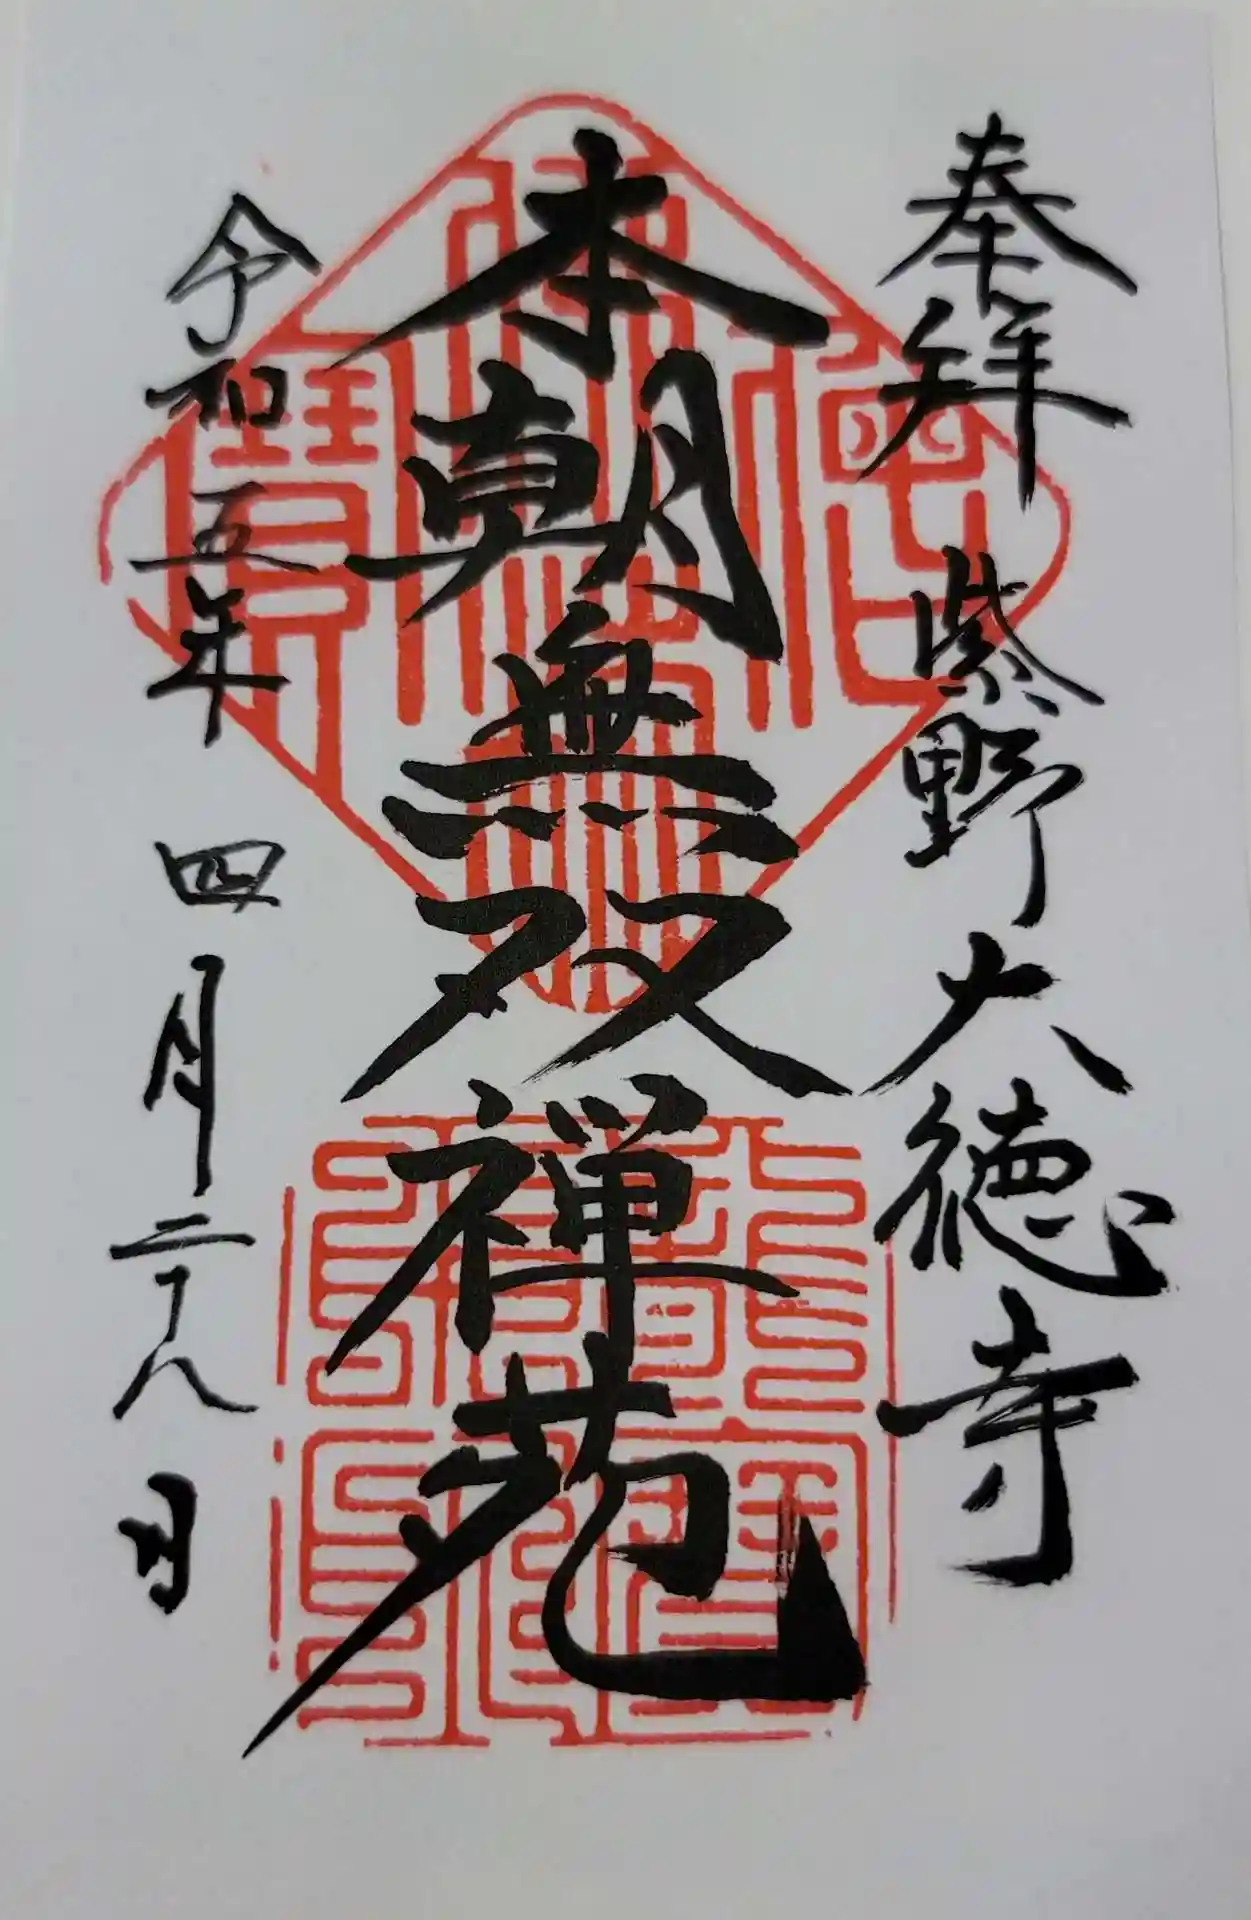 奉拝 紫野大徳寺
本朝無双禅苑
令和五年 四月二十八日